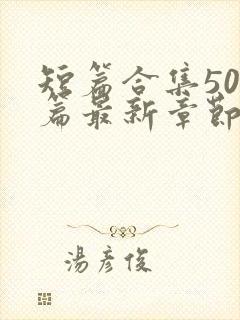 短篇合集50
篇最新章節
湯彥俊